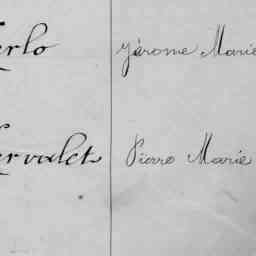 erlo Jérome Marie
ervalet Pierre Marie